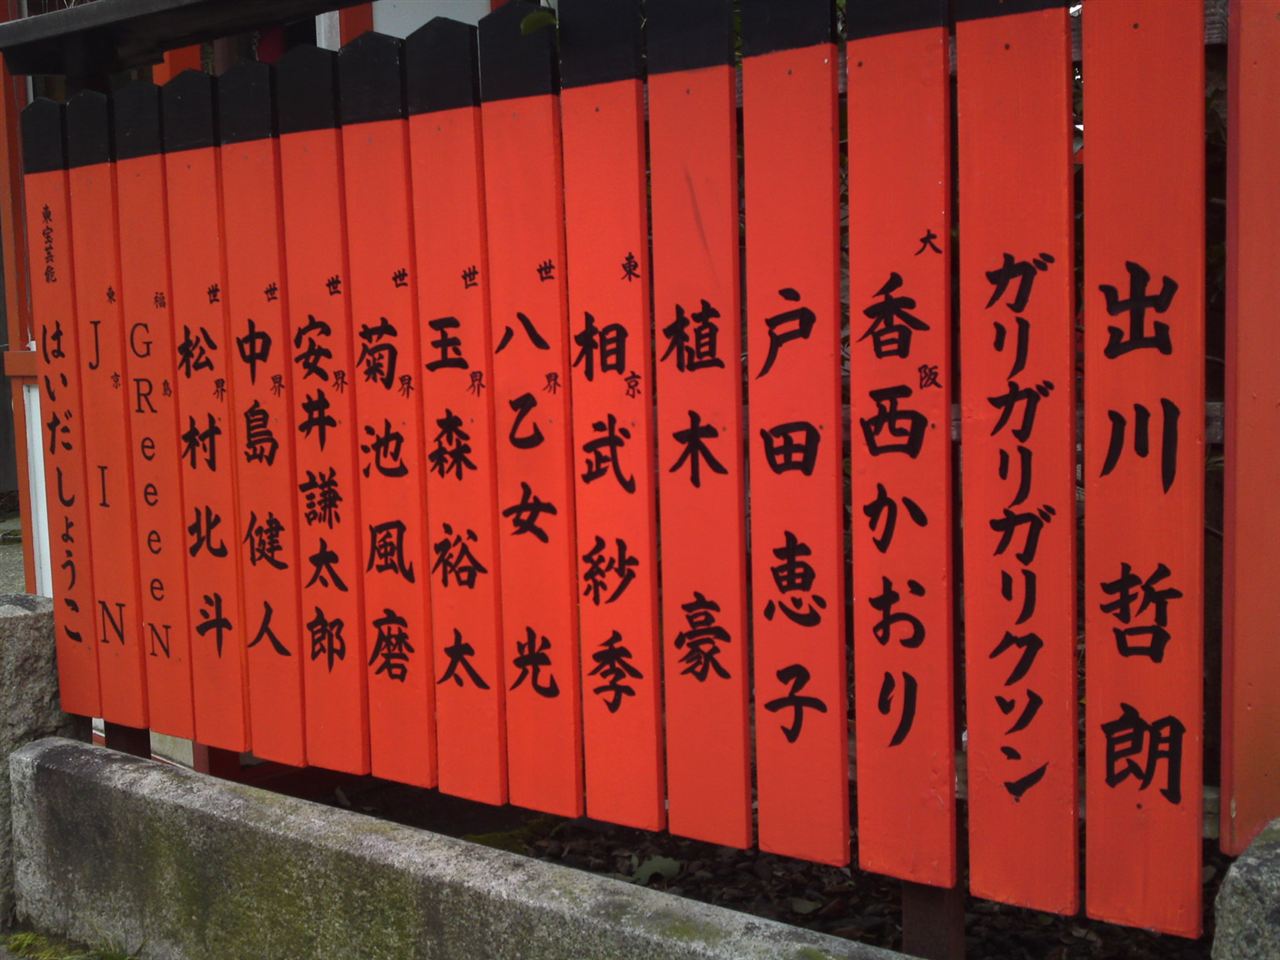 出川哲朗
ガリガリガリクソン
大阪
香西かおり
戸田恵子
植木豪
東京
相武紗季
世界
八乙女光
世界
玉森裕太
世界
菊池風磨
世界
安井謙太郎
世界
中島健人
世界
松村北斗
福島
GReeeeN
東京
JIN
東宝芸能
はいだしょうこ